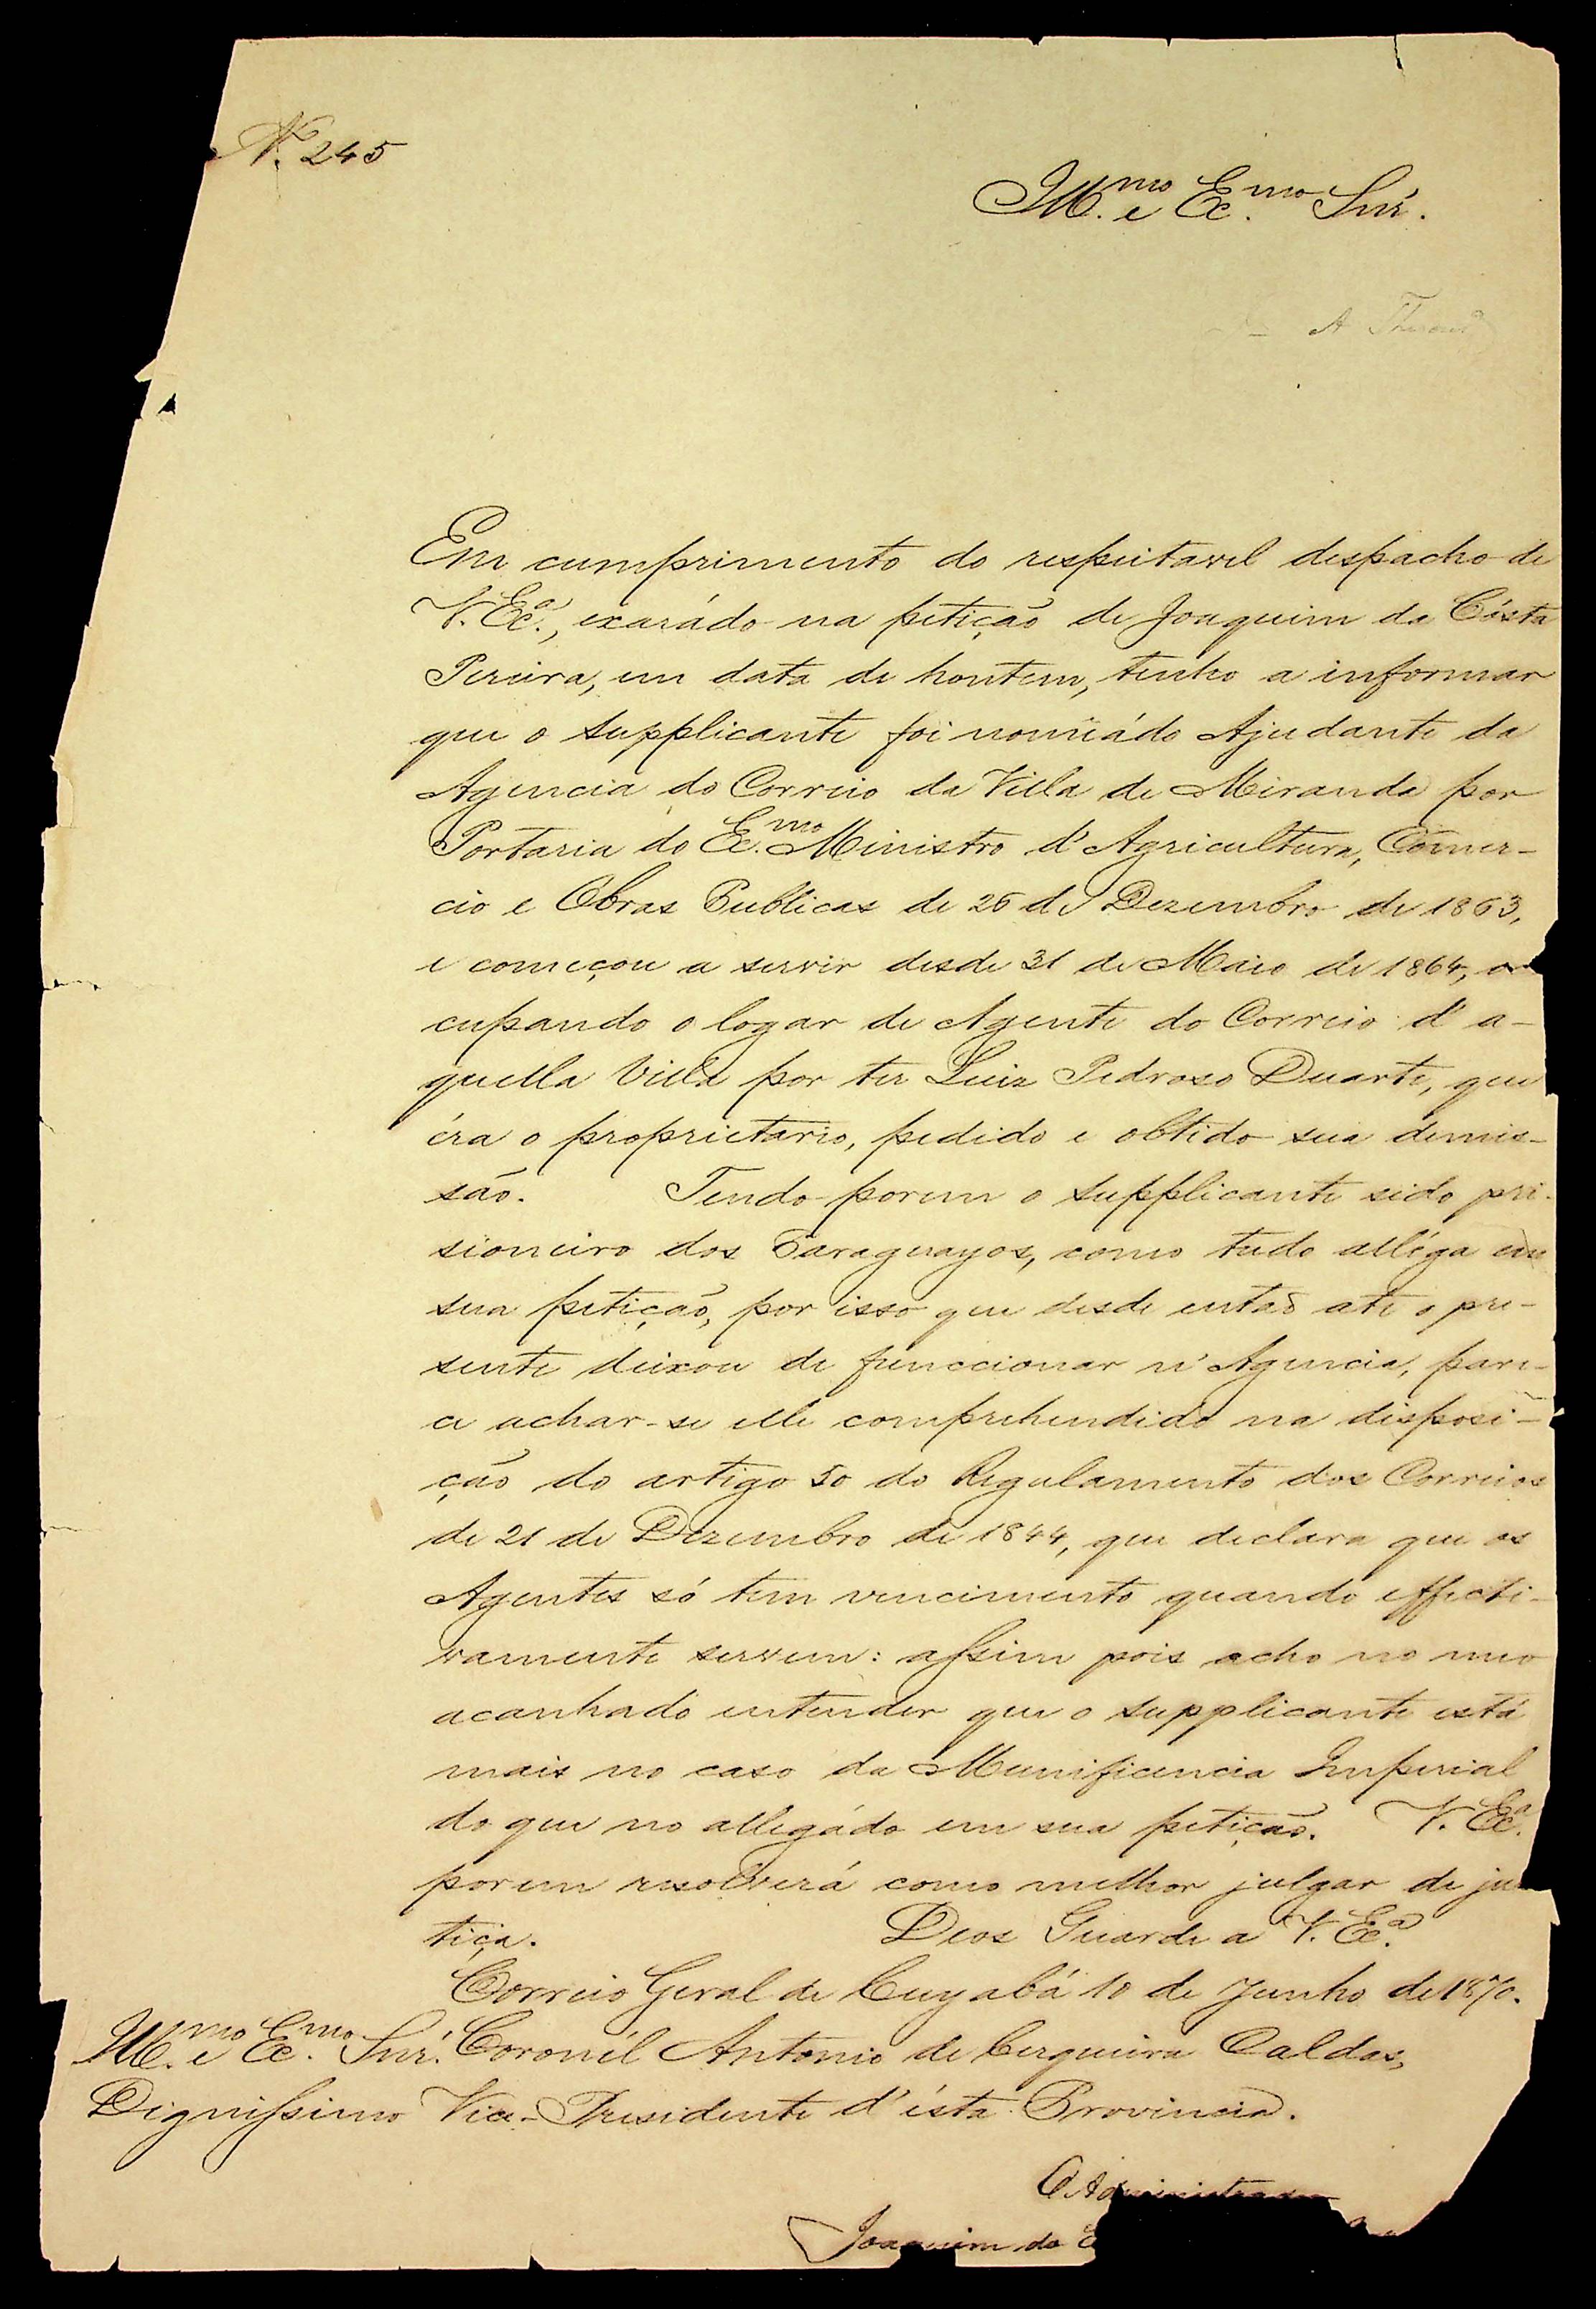 N.º 245
Ill.mo e Ex.mo Snr̃.
A
Em cumprimento do respeitavel despacho de
V. Ex.ª, exarádo na petição de Joaquim da Cósta
Pereira, em data de hontem, tenho a informar
que o supplicante foi nomeádo Ajudante da
Agencia do Correio da Villa de Miranda por
Portaria do Ex.mo Ministro d'Agricultura, Com̃er-
cio e Obras Publicas de 26 de Dezembro de 1863,
e começou a servir desde 31 de Maio de 1864, oc
cupando o logar de Agente do Correio d'a-
quella Villa por ter Luiz Pedroso Duarte, que
éra o proprietario, pedido e obtido sua demis-
são. Tendo porem o supplicante sido pri-
sioneiro dos Paraguayos, como tudo alléga em
sua petição, por isso que desde então até o pre-
sente deixou de funccionar n'Agencia, pare-
ce achar-se elle comprehendido na disposi-
ção do artigo 50 do Regulamento dos Correios
de 21 de Dezembro de 1844, que declara que os
Agentes só tem vencimento quando effecti-
vamente servem: assim pois acho no meo
acanhado entender que o supplicante está
mais no caso da Munificencia Imperial
do que no allegádo em sua petição. V. Ex.ª
porem resolverá como melhor julgar de jus
tiça. Deos Guarde a V. Ex.ª
Correio Geral de Cuyabá 10 de Junho de 1870.
Ill.mo e Ex.mo Snr̃. Coronél Antonio de Cerqueira Caldas,
Dignissimo Vice-Presidente d'ésta Provincia.
O Administrador
Joaquim da